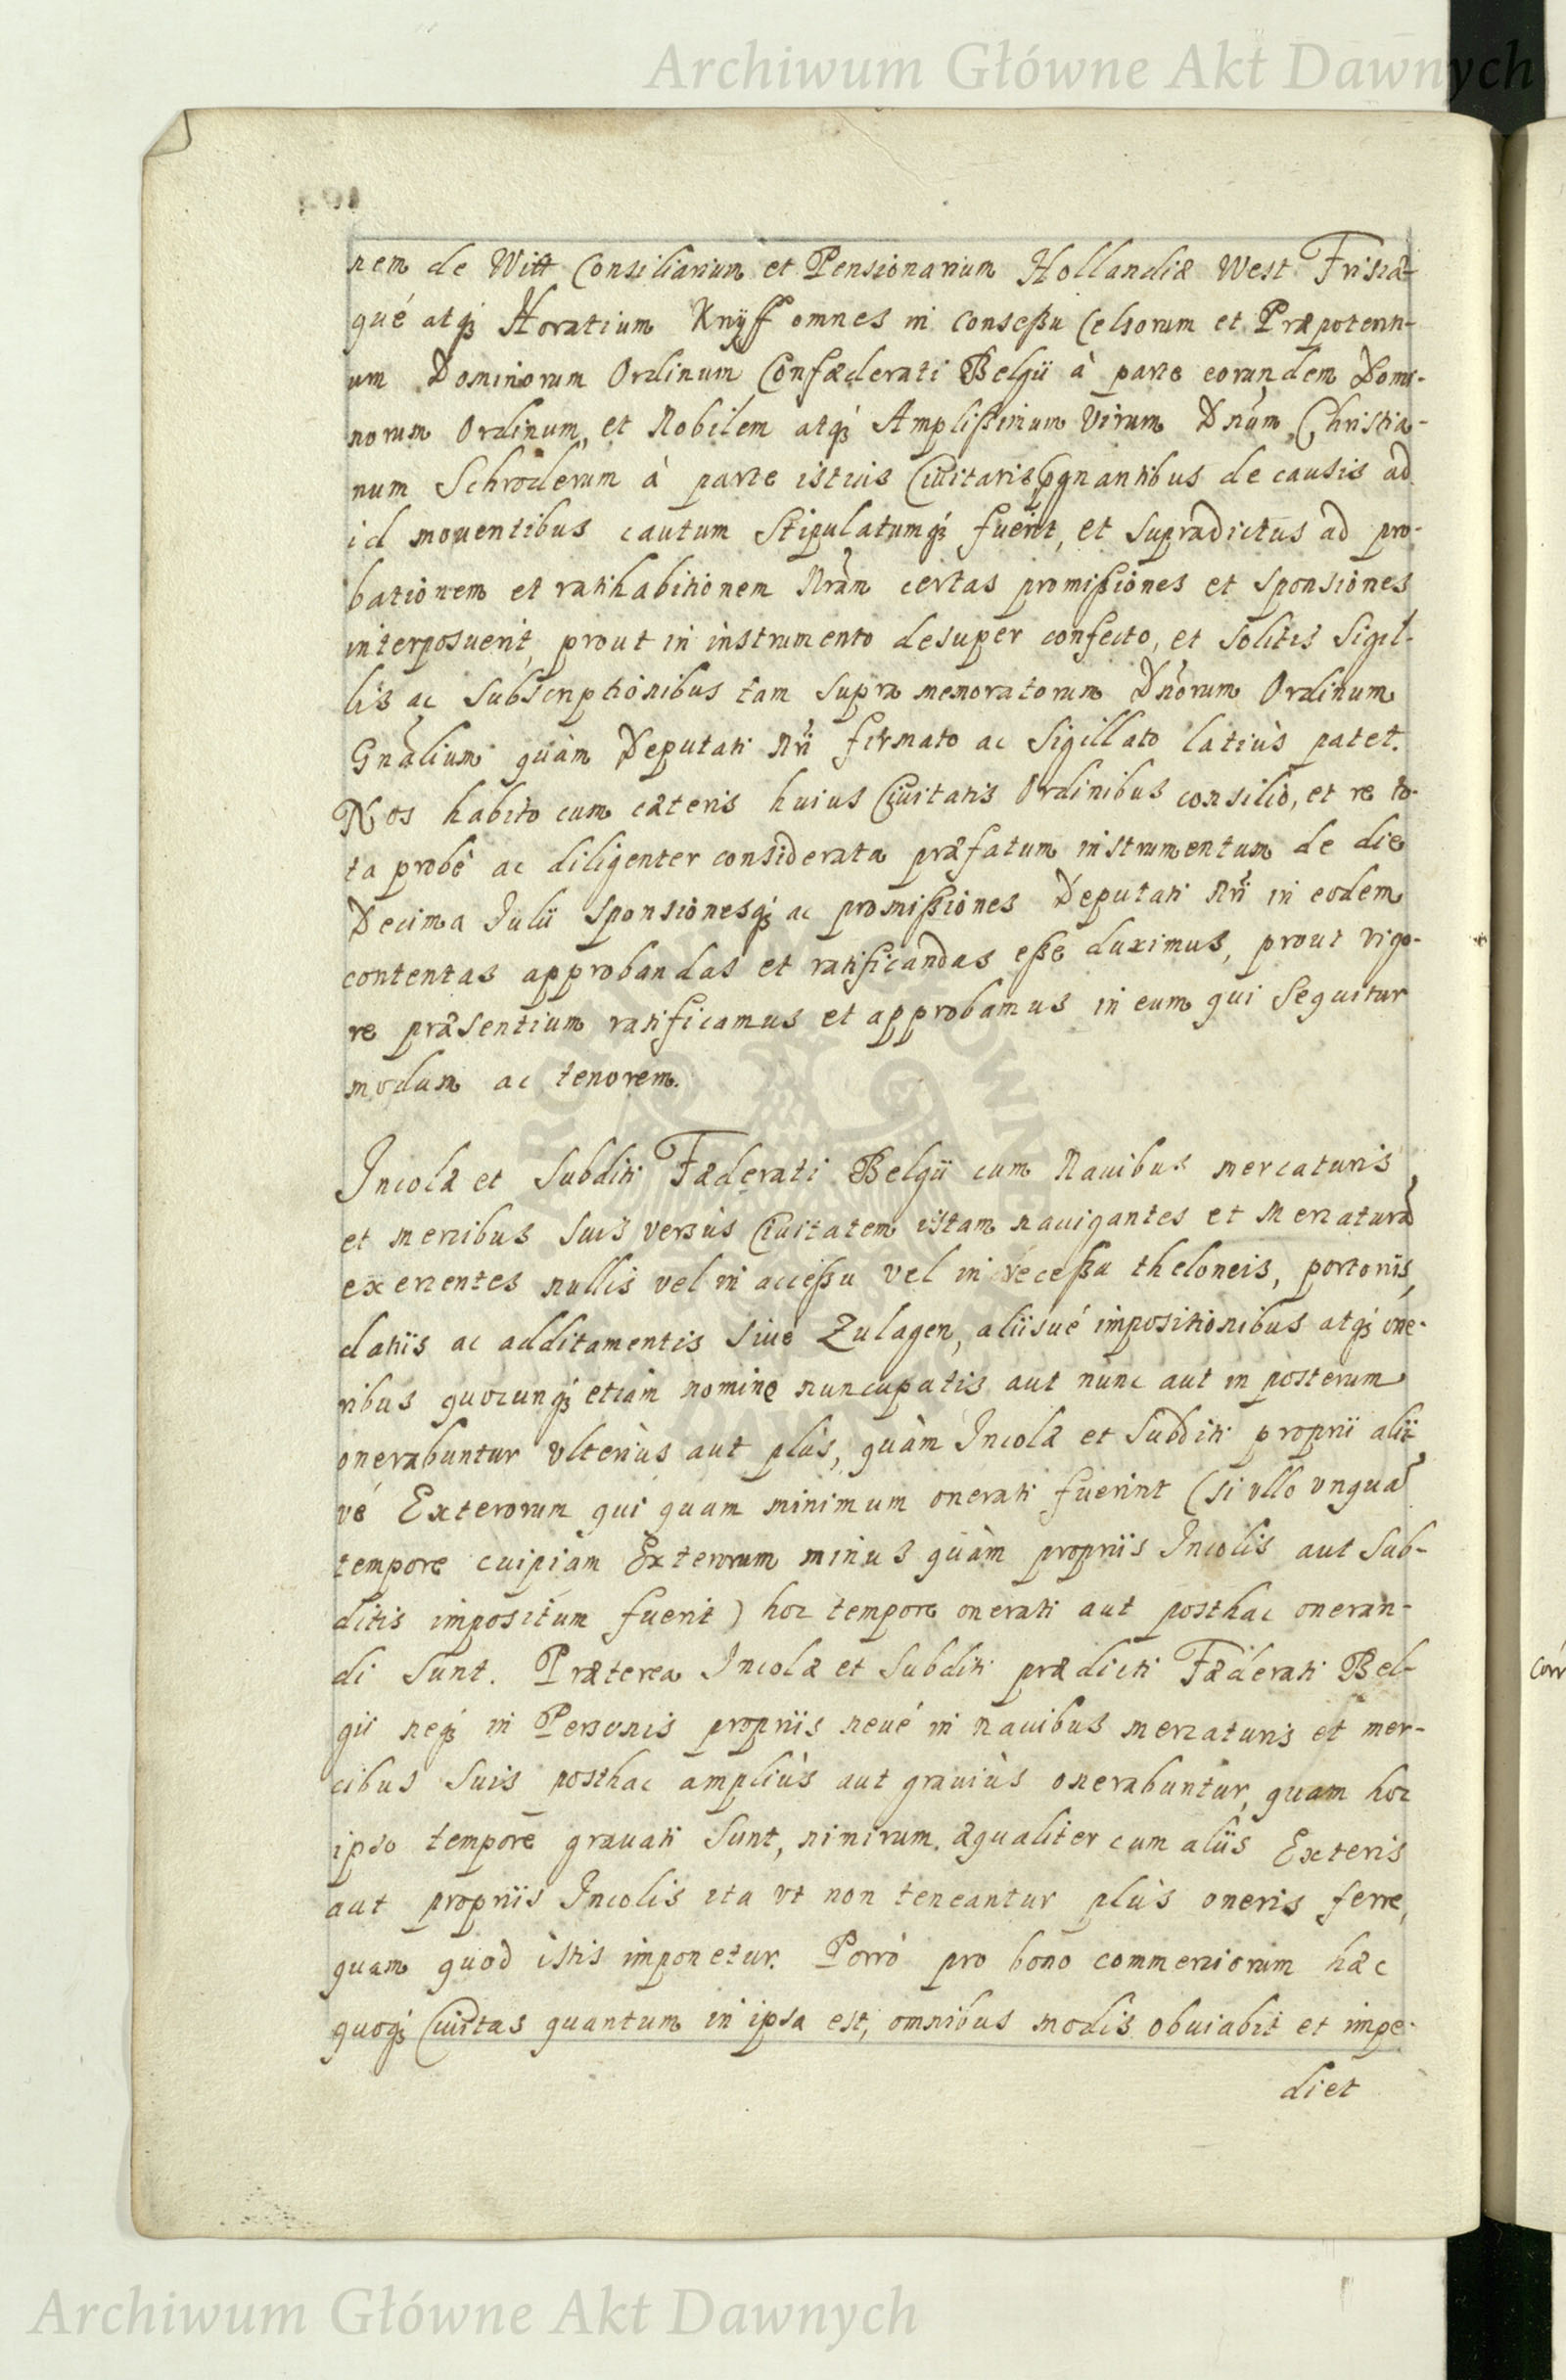 Archiwum Główne Akt Dawnych
nem de Witt Consiliarium et Pensionarium Hollandiæ West Frisiæ-
qué atq; Horatium Knÿff omnes in consessu Celsorum et Præpotenti-
um Dominorum Ordinum Confæderati Belgii à parte eorundem Domi-
norum Ordinum, et Nobilem atq; Amplissimum Virum Dnum Christia-
num Schröderum à parte istius Civitatis pgnantibus de causis ad
id mouentibus cautum Stipulatumq; fuerit, et supradictus ad pro-
bationem et ratihabitionem Nram certas promissiones et sponsiones
interposuerit, prout in instrumento desuper confecto, et solitis Sigil-
lis ac Subscriptionibus tam supra memoratorum Dnorum Ordinum
Gnalium quàm Deputati Nri firmato ac Sigillato latiùs patet.
Nos habito cum cæteris huius Civitatis Ordinibus consilio, et re to-
ta probè ac diligenter considerata præfatum instrumentum de die
Decima Julii Sponsionesq; ac promissiones Deputati Nri in eodem
contentas approbandas et ratificandas esse duximus, prout vigo-
re præsentium ratificamus et approbamus in eum qui sequitur
modum ac tenorem.
Incolæ et Subditi Fæderati Belgii cum Nauibus mercaturis
et mercibus suis versùs Civitatem istam nauigantes et Mercaturã
exercentes nullis vel in accessu vel in recessu theloneis, portoriis,
datiis ac additamentis siué Zulagen, aliisué impositionibus atq; one-
ribus quocunq; etiam nomine nuncupatis aut nunc aut in posterum
onerabuntur vlteriùs aut plùs, quàm Incolæ et Subditi proprii alii
vé Exterorum qui quam minimum onerati fuerint (si vllo vnquã
tempore cuipiam Exterorum minus quàm propriis Incolis aut Sub-
ditis impositum fuerit) hoc tempore onerati aut posthac oneran-
di sunt. Præterea Incolæ et Subditi prædicti Fæderati Bel-
gii neq; in Personis propriis neué in nauibus mercaturis et mer-
cibus suis posthac ampliùs aut grauiùs onerabuntur, quam hoc
ipso tempore grauati sunt, nimirum æqualiter cum aliis Exteris
aut propriis Incolis ita vt non teneantur plùs oneris ferre,
quam quod istis imponetur. Porrò pro bono commerciorum hæc
quoq; Civitas quantum in ipsa est, omnibus modis obuiabit et impe-
diet
Archiwum Główne Akt Dawnych